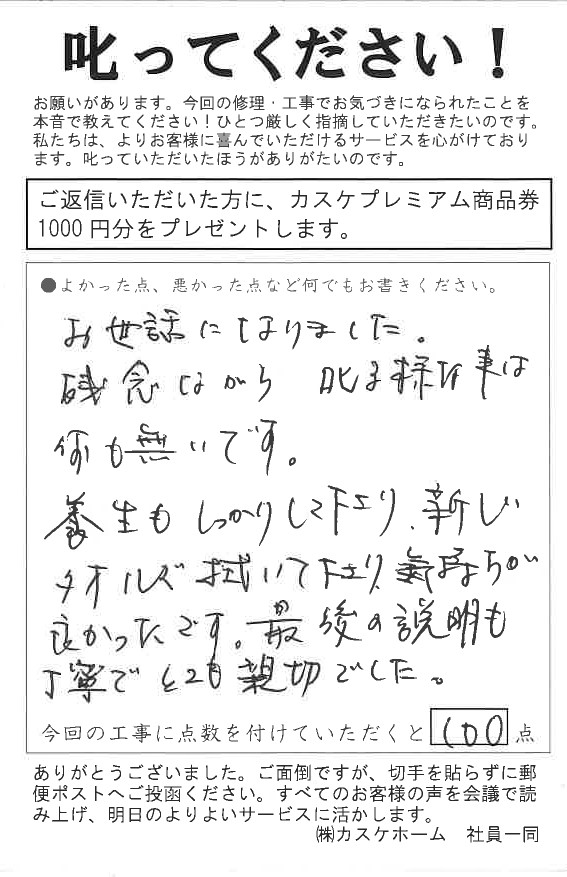 叱ってください！
お願いがあります。今回の修理・工事でお気づきになられたことを
本音で教えてください！ひとつ厳しく指摘していただきたいのです。
私たちは、よりお客様に喜んでいただけるサービスを心がけており
ます。叱っていただいたほうがありがたいのです。
ご返信いただいた方に、カスケプレミアム商品券
1000円分をプレゼントします。
●よかった点、悪かった点など何でもお書きください。
お世話になりました。
残念ながら 叱る様な事は
何も無いです。
養生もしっかりして下さり、新しい
タオルで拭いて下さり、気持ちが
良かったです。最後の説明も
丁寧でとても親切でした。
今回の工事に点数を付けていただくと 100 点
ありがとうございました。ご面倒ですが、切手を貼らずに郵
便ポストへご投函ください。すべてのお客様の声を会議で読
み上げ、明日のよりよいサービスに活かします。
㈱カスケホーム 社員一同